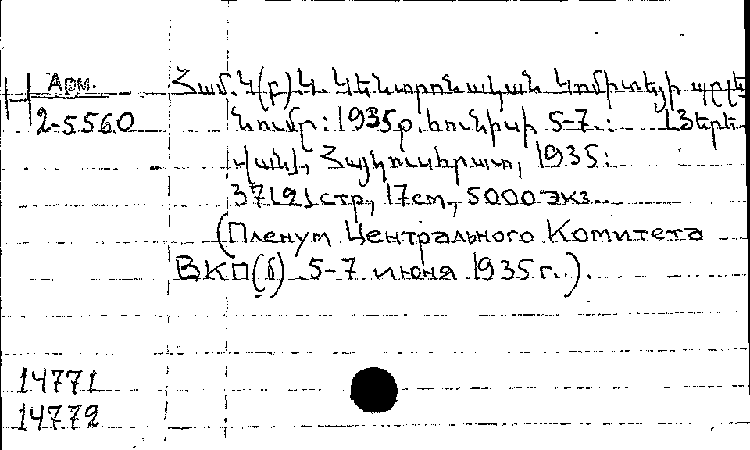 Арм.
2-5560
Համ. Կ(բ)Կ Կենտրոնական Կոմիտեյի պլե-
նումը: 1935թ. հունիսի 5-7.: [Յերե-
վան], Հայկուսհրատ, 1935:
37[2] стр., 17 см., 5000 экз.
(Пленум Центрального Комитета
ВКП(б) 5-7 июня 1935 г.).
14771
14772